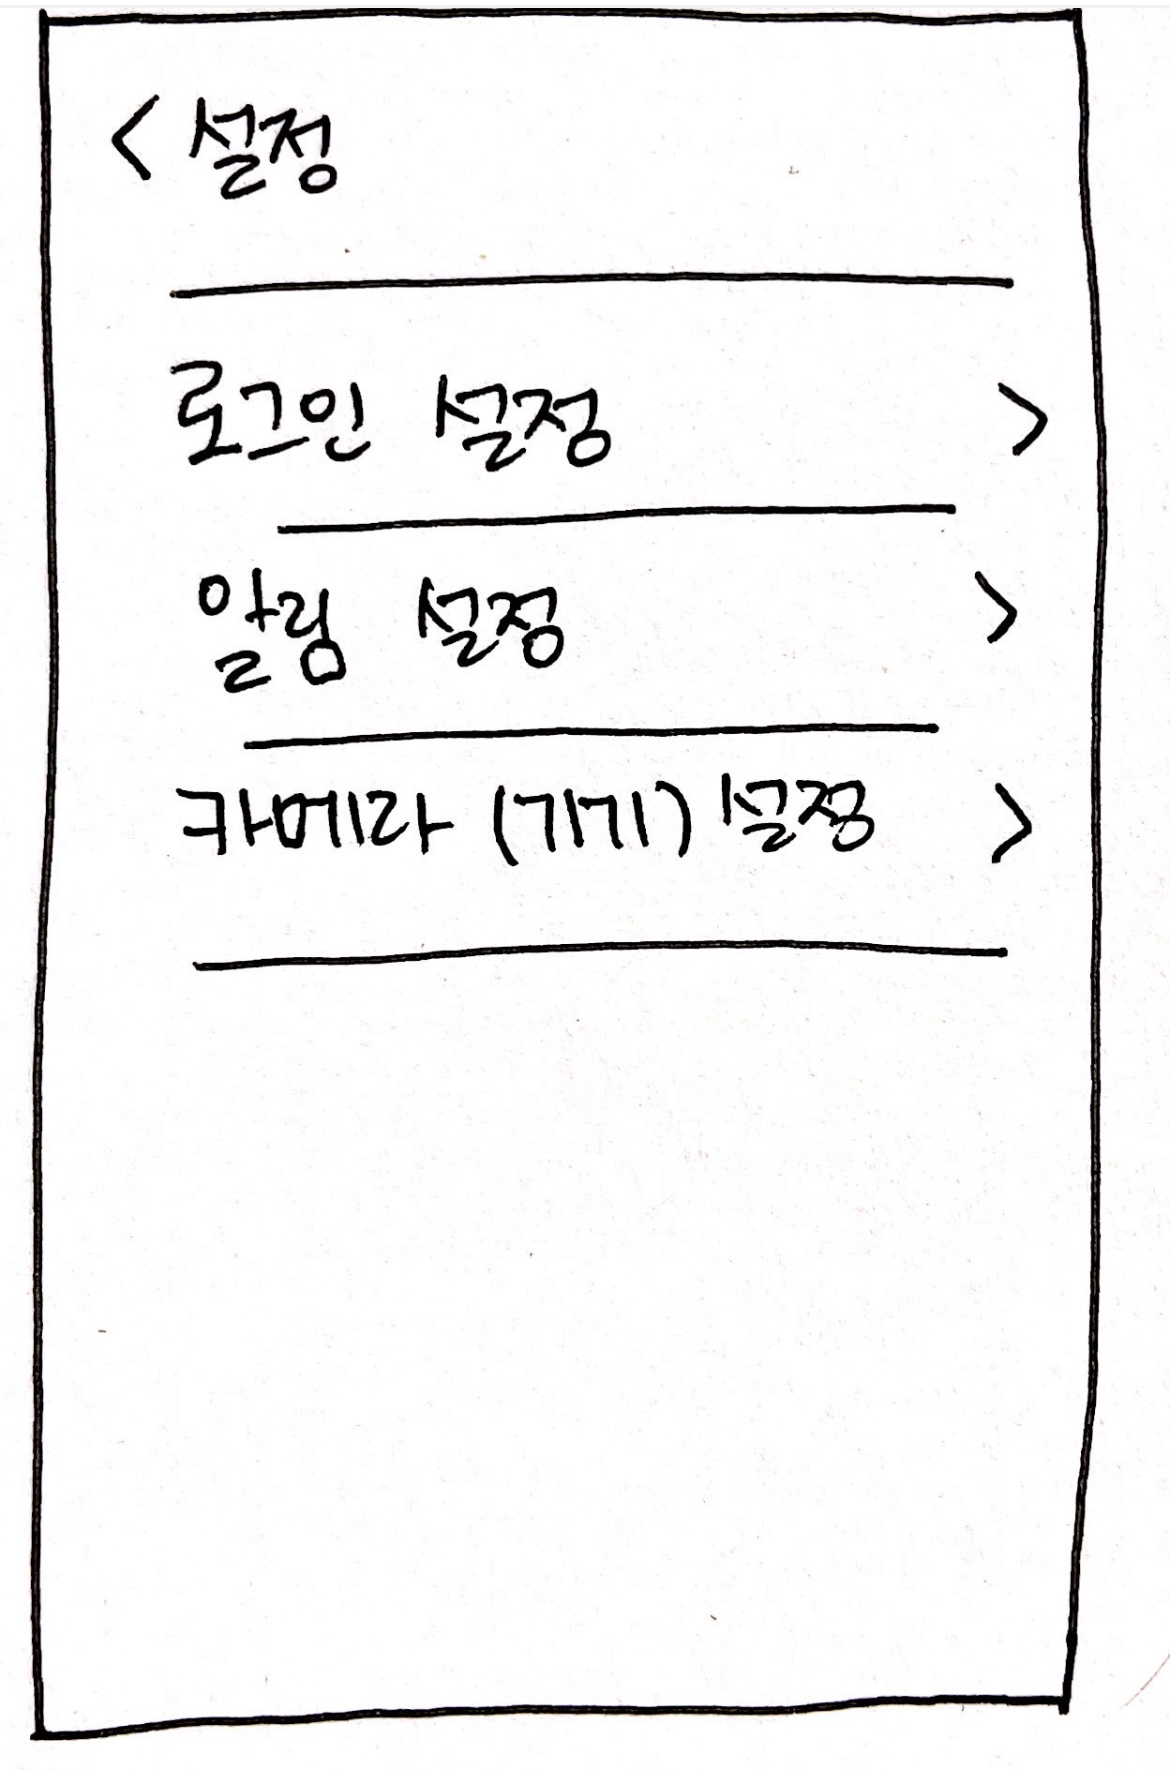 < 설정
로그인 설정 >
알림 설정 >
카메라 (기기) 설정 >